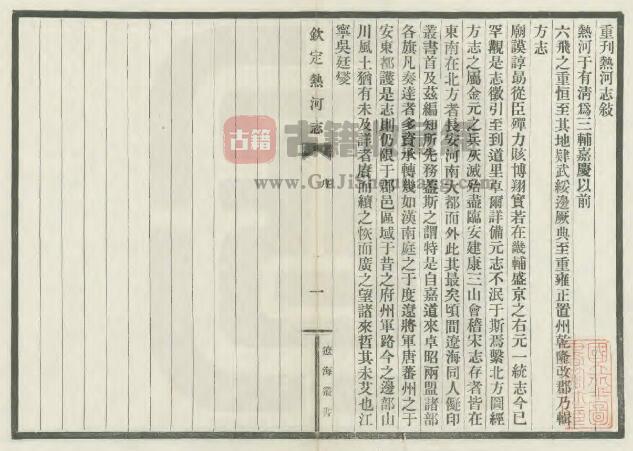 重刊熱河志敍
熱河于有清爲三輔嘉慶以前
六飛之重恒至其地肄武綏邊厥典至重雍正置州乾隆改郡乃輯
方志
廟謨諄勗從臣殫力賅博翔實若在畿輔盛京之右元一統志今已
罕覯是志徵引至到道里卓爾詳備元志不泯于斯焉繫北方圖經
方志之屬金元之兵灰滅殆盡臨安建康三山會稽宋志存者皆在
東南在北方者長安河南大都而外此其最矣頃間遼海同人儗印
叢書首及茲編知所先務蓋斯之謂特是自嘉道來卓昭兩盟諸部
各旗凡奏達者多資承轉幾如漢南庭之于度遼將軍唐蕃州之于
安東都護是志則仍限于郡邑區域于昔之府州軍路今之邊部山
川風土猶有未及詳者賡而續之恢而廣之望諸來哲其未艾也江
寧吳廷燮
欽定熱河志
序
一
遼海叢書
古籍
www.GuJiShuWang.com